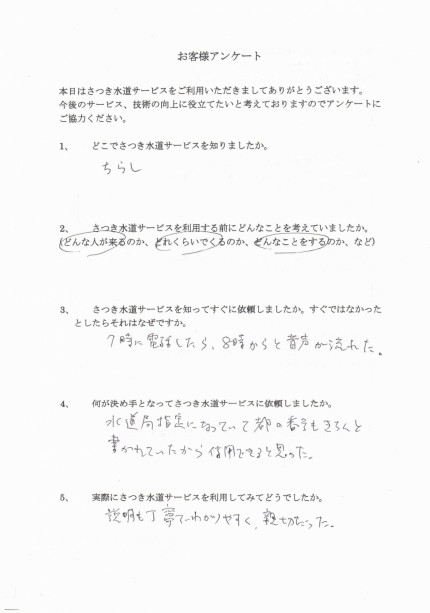 お客様アンケート
本日はさつき水道サービスをご利用いただきましてありがとうございます。
今後のサービス、技術の向上に役立てたいと考えておりますのでアンケートに
ご協力ください。
1、 どこでさつき水道サービスを知りましたか。
ちらし
2、 さつき水道サービスを利用する前にどんなことを考えていましたか。
(どんな人が来るのか、どれくらいでくるのか、どんなことをするのか、など)
3、 さつき水道サービスを知ってすぐに依頼しましたか。すぐではなかった
としたらそれはなぜですか。
7時に電話したら、8時からと音声が流れた。
4、 何が決め手となってさつき水道サービスに依頼しましたか。
水道局指定になっていて都の番号もきちんと
書かれていたから信用できると思った。
5、 実際にさつき水道サービスを利用してみてどうでしたか。
説明も丁寧でわかりやすく、親切だった。